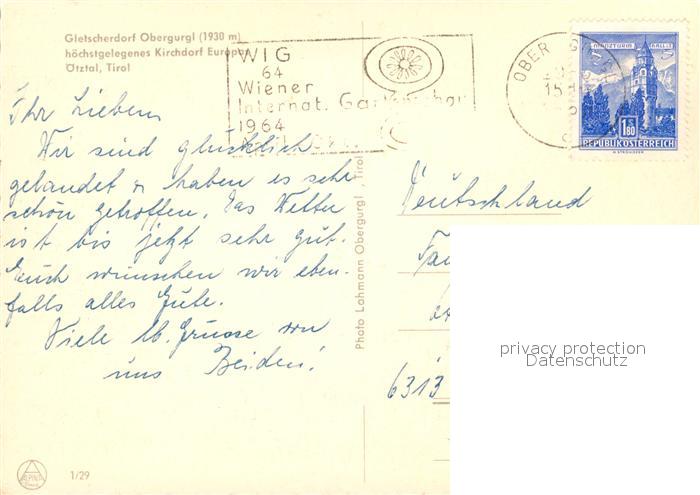 Gletscherdorf Obergurgl (1930 m)
höchstgelegenes Kirchdorf Europas
Ötztal, Tirol
WIG
64
Wiener
Internat. Gartenschau
1964
OBER GURGL
MÜNZTURM HALL I. T.
1.80
REPUBLIK ÖSTERREICH
Ihr Lieben,
Wir sind glücklich
gelandet u haben es sehr
schön getroffen. Das Wetter
ist bis jetzt sehr gut.
Euch wünschen wir eben-
falls alles Gute.
Viele lb. Grüsse von
uns Beiden!
Photo Lohmann Obergurgl, Tirol
Deutschland
Fa
6313
privacy protection
Datenschutz
ALPINA
1/29